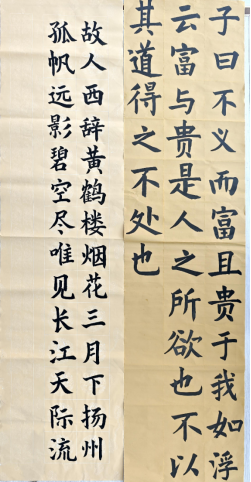 子曰不义而富且贵于我如浮
云富与贵是人之所欲也不以
其道得之不处也
故人西辞黄鹤楼烟花三月下扬州
孤帆远影碧空尽唯见长江天际流